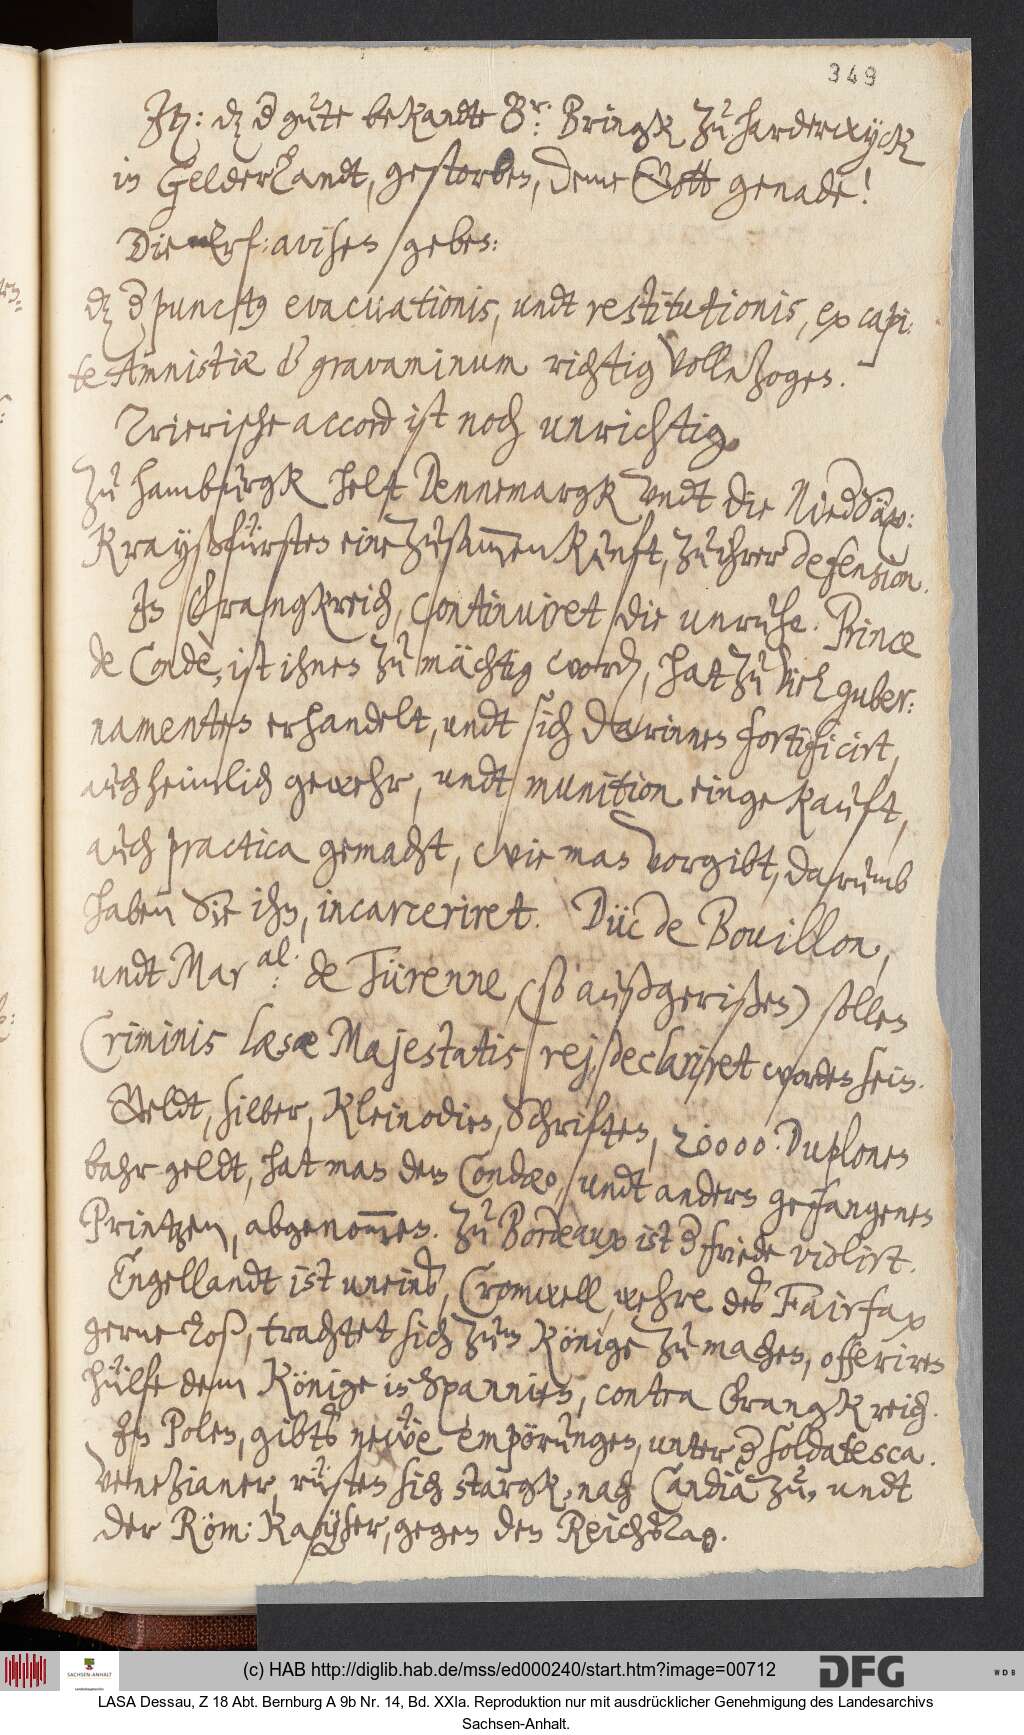 349
Jt: dz d gute bekandte Dr. Bringk zu Harderwyck
in Gelderlandt, gestorben, deme Gott genade!
Die Erf: avisen geben:
dz d punctus evacuationis, undt restitutionis, ex capi:
te Amnistiæ & gravaminum richtig vollnzogen.
Trierische accord ist noch unrichtig.
Zu Hamburgk helt Dennemargk undt die NiedSäx:
Kraysfürsten eine zusammenkunft, zu ihrer defension.
In Frangkreich, continuiret die unruhe. Prince
de Condè, ist ihnen zu mächtig word, hat zu viel guber:
namenten erhandelt, undt sich darinnen fortificirt,
auch heimlich gewehr, undt munition eingekauft,
auch practica gemacht, wie man vorgibt, darumb
haben Sie ihn, incarceriret. Düc de Bouillon,
undt Maral. de Türenne, (so außgerißen) sollen
Criminis læsæ Majestatis rej, declariret worden sein.
Geldt, silber, Kleinodien, Schriften, 20000 Duplonen
bahr geldt, hat man dem Condæo, undt andern gefangenen
Printzen, abgenommen. Zu Bordeaux ist d friede violirt.
Engellandt ist uneinß, Cromwell, wehre deß Fairfax
gerne loß, trachtet sich zum Könige zu machen, offeriren
hülfe dem Könige in Spannien, contra Frangkreich.
In Polen, gibts neüe empörungen, unter d Soldatesca.
Venezianer, rüsten sich stargk, nach Candia zu, undt
der Röm: Kayser, gegen den Reichstag.
(c) HAB http://diglib.hab.de/mss/ed000240/start.htm?image=00712
SACHSEN-ANHALT
DFG
WDB
LASA Dessau, Z 18 Abt. Bernburg A 9b Nr. 14, Bd. XXIa. Reproduktion nur mit ausdrücklicher Genehmigung des Landesarchivs
Sachsen-Anhalt.